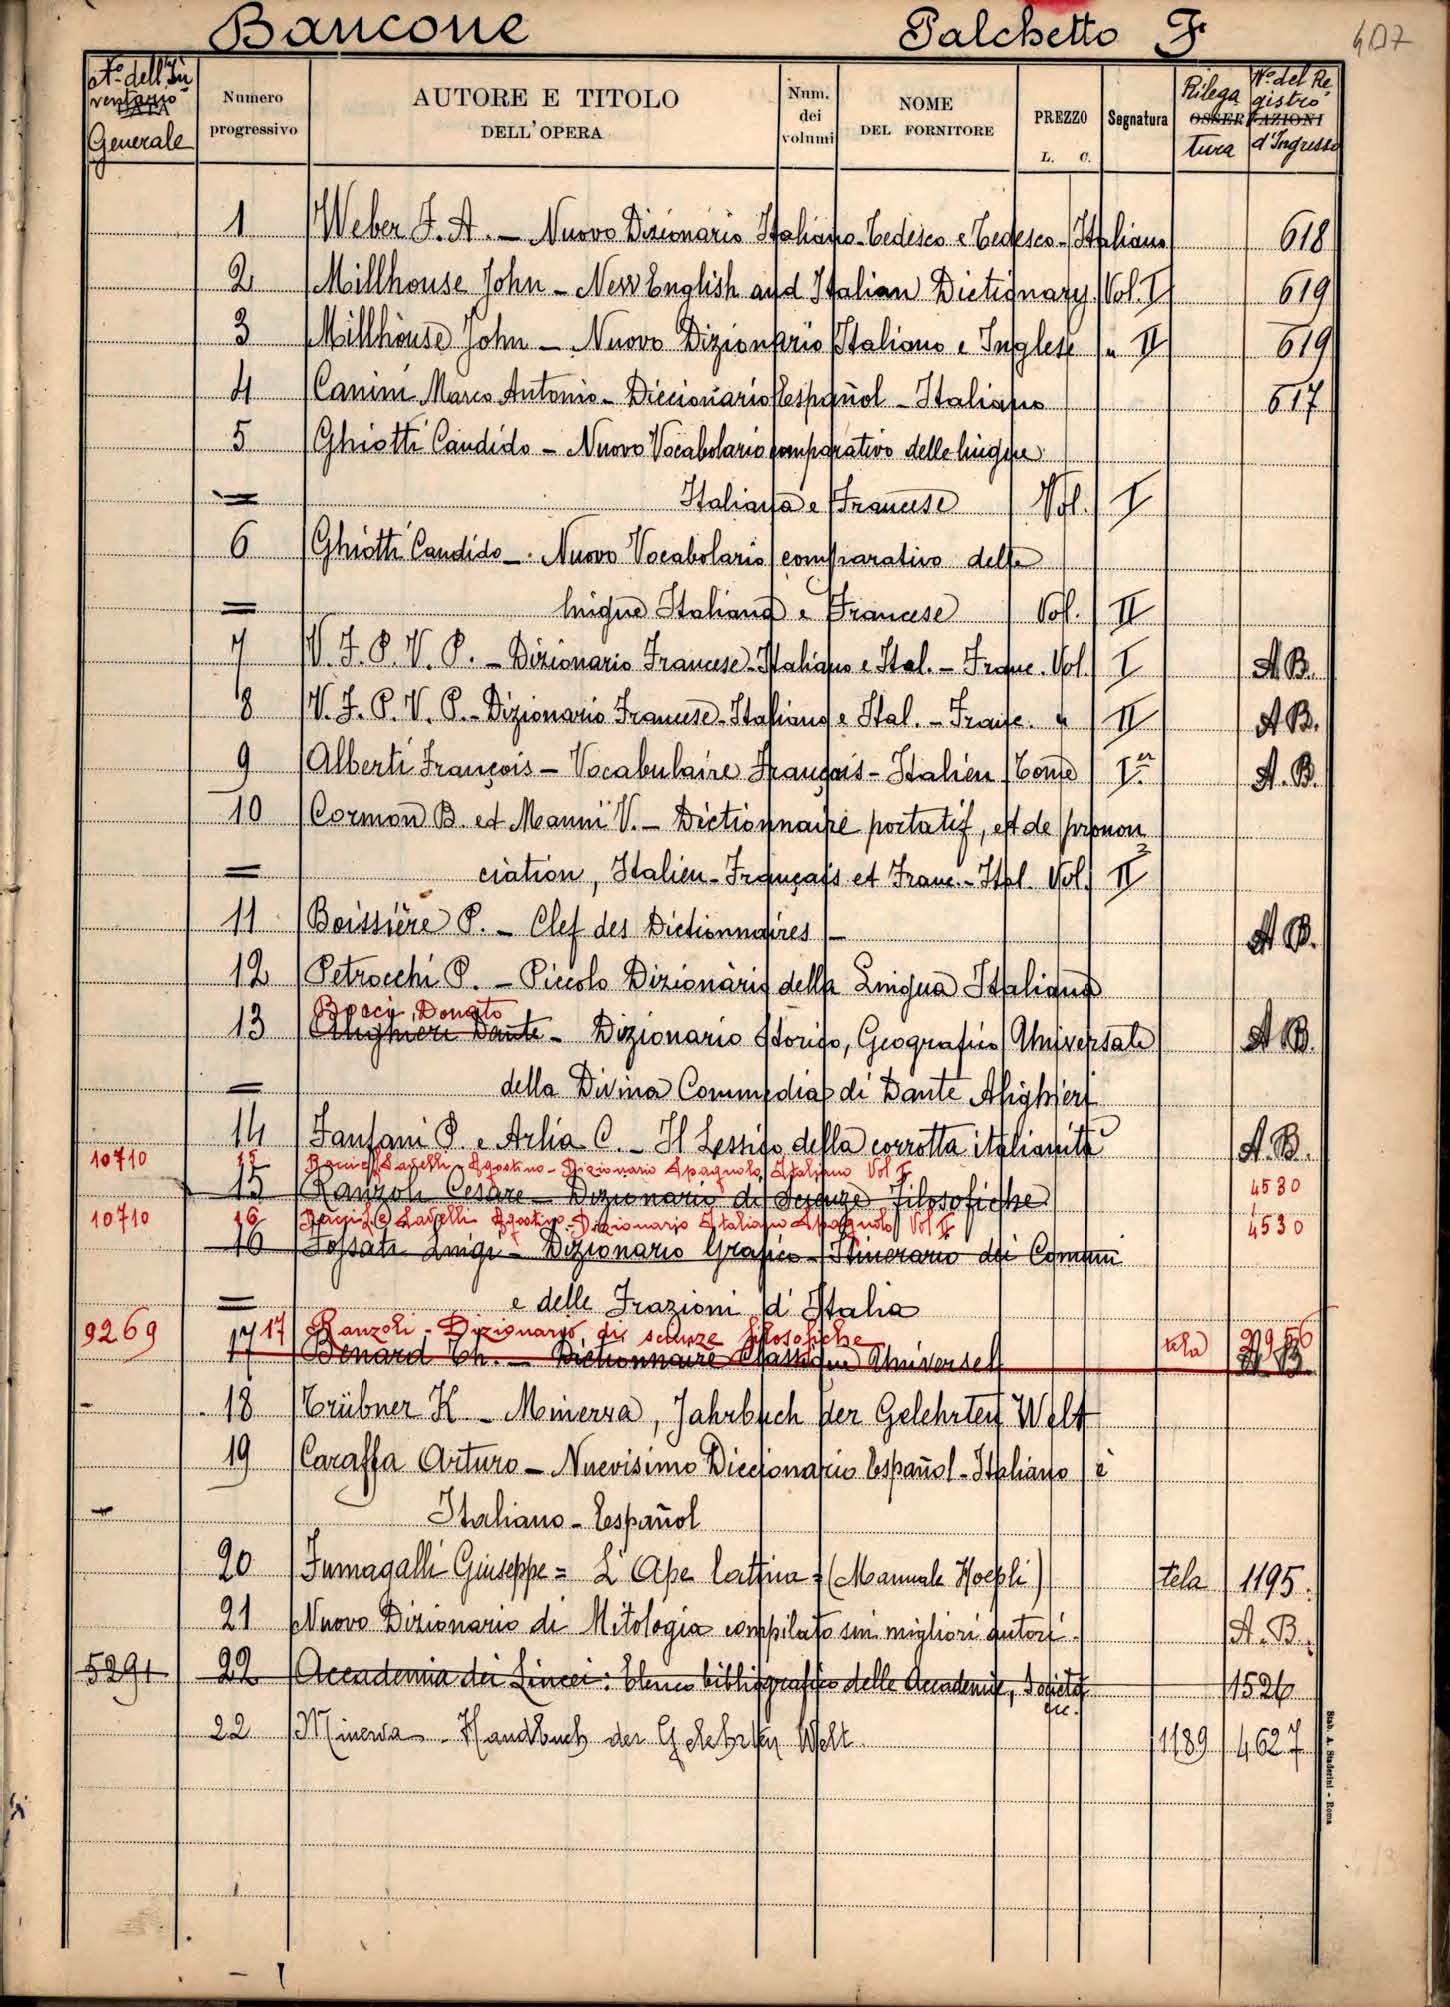 Bancone Palchetto F 407
N.o dell'In
ventario
DATA
Generale
Numero
progressivo
AUTORE E TITOLO
DELL'OPERA
Num.
dei
volumi
NOME
DEL FORNITORE
PREZZO
L. C.
Segnatura
Rilega
tura
OSSERVAZIONI
N.o del Re
gistro
d'Ingresso
1 Weber F. A. – Nuovo Dizionario Italiano-Tedesco e Tedesco-Italiano 618
2 Millhouse John – New English and Italian Dictionary Vol. I 619
3 Millhouse John – Nuovo Dizionario Italiano e Inglese " II 619
4 Canini Marco Antonio – Diccionario Español – Italiano 617
5 Ghiotti Candido – Nuovo Vocabolario comparativo delle lingue
= Italiana e Francese Vol. I
6 Ghiotti Candido – Nuovo Vocabolario comparativo delle
= lingue Italiana e Francese Vol. II
7 V. F. P. V. P. – Dizionario Francese-Italiano e Ital. – Franc. Vol. I A. B.
8 V. F. P. V. P. – Dizionario Francese-Italiano e Ital. – Franc. " II A B.
9 Alberti François – Vocabulaire Français – Italien Tome I.er A. B.
10 Cormon B. et Manni V. – Dictionnaire portatif, et de pronon
= ciation, Italien-Français et Franc.-Ital. Vol. II
11 Boissière P. – Clef des Dictionnaires – A B.
12 Petrocchi P. – Piccolo Dizionario della Lingua Italiana
Bocci Donato
13 Alighieri Dante – Dizionario Storico, Geografico Universale A B.
= della Divina Commedia di Dante Alighieri
14 Fanfani P. e Arlia C. – Il Lessico della corrotta italianità A. B.
10710 15 Savelli Agostino – Dizionario Spagnolo Italiano Vol I 4530
15 Ranzoli Cesare – Dizionario di Scienze filosofiche
10710 16 Savelli Agostino – Dizionario Italiano Spagnolo Vol II 4530
16 Fossati Luigi – Dizionario Grafico – Itinerario dei Comuni
= e delle Frazioni d'Italia
9269 17 Ranzoli – Dizionario di scienze filosofiche tela 2956
17 Bénard Th. – Dictionnaire Classique Universel A B.
18 Trübner K – Minerva, Jahrbuch der Gelehrten Welt
19 Caraffa Arturo – Nuevisimo Diccionario Español-Italiano è
Italiano – Español
20 Fumagalli Giuseppe = L'Ape lattina = (Manuale Hoepli) tela 1195.
21 Nuovo Dizionario di Mitologia compilato sui migliori autori. A. B.
5291 22 Accademia dei Lincei: Elenco bibliografico delle Accademie, Società 1526
ecc.
22 Minerva – Handbuch der Gelehrten Welt 1189 4627
Stab. A. Staderini – Roma